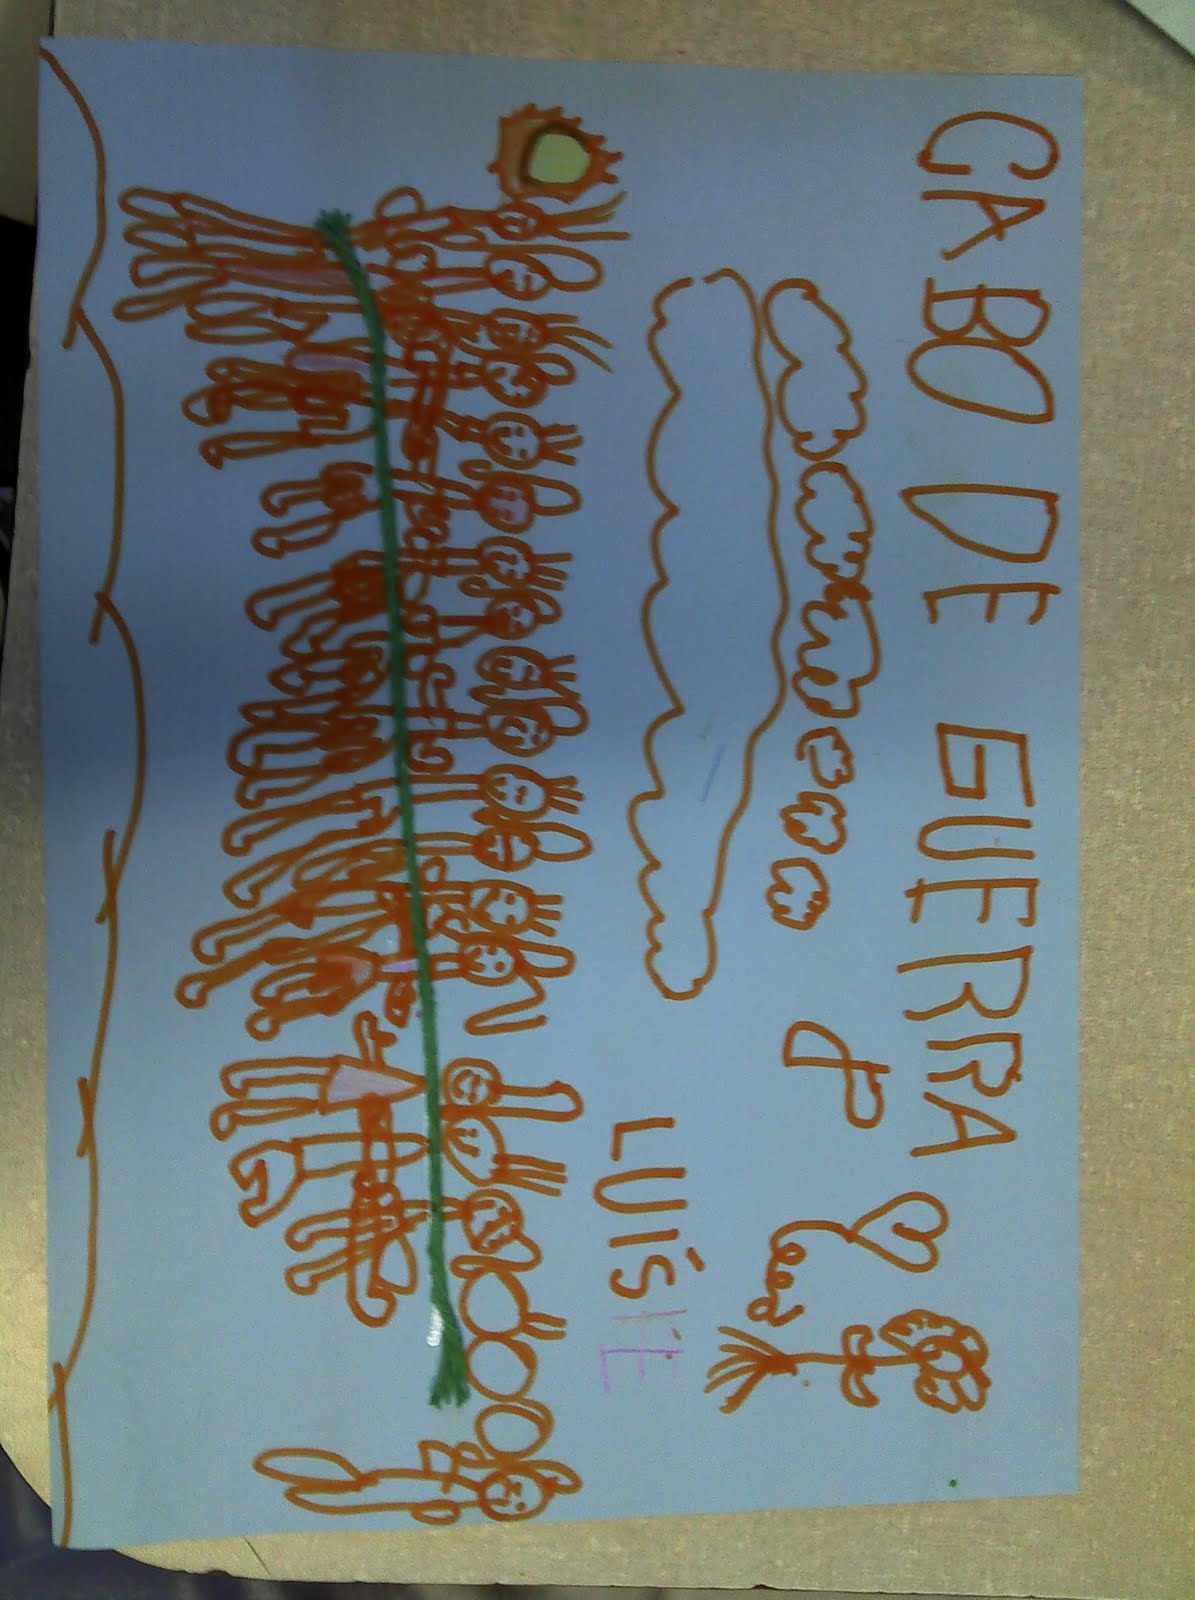 CABO DE GUERRA
LUÍS FE